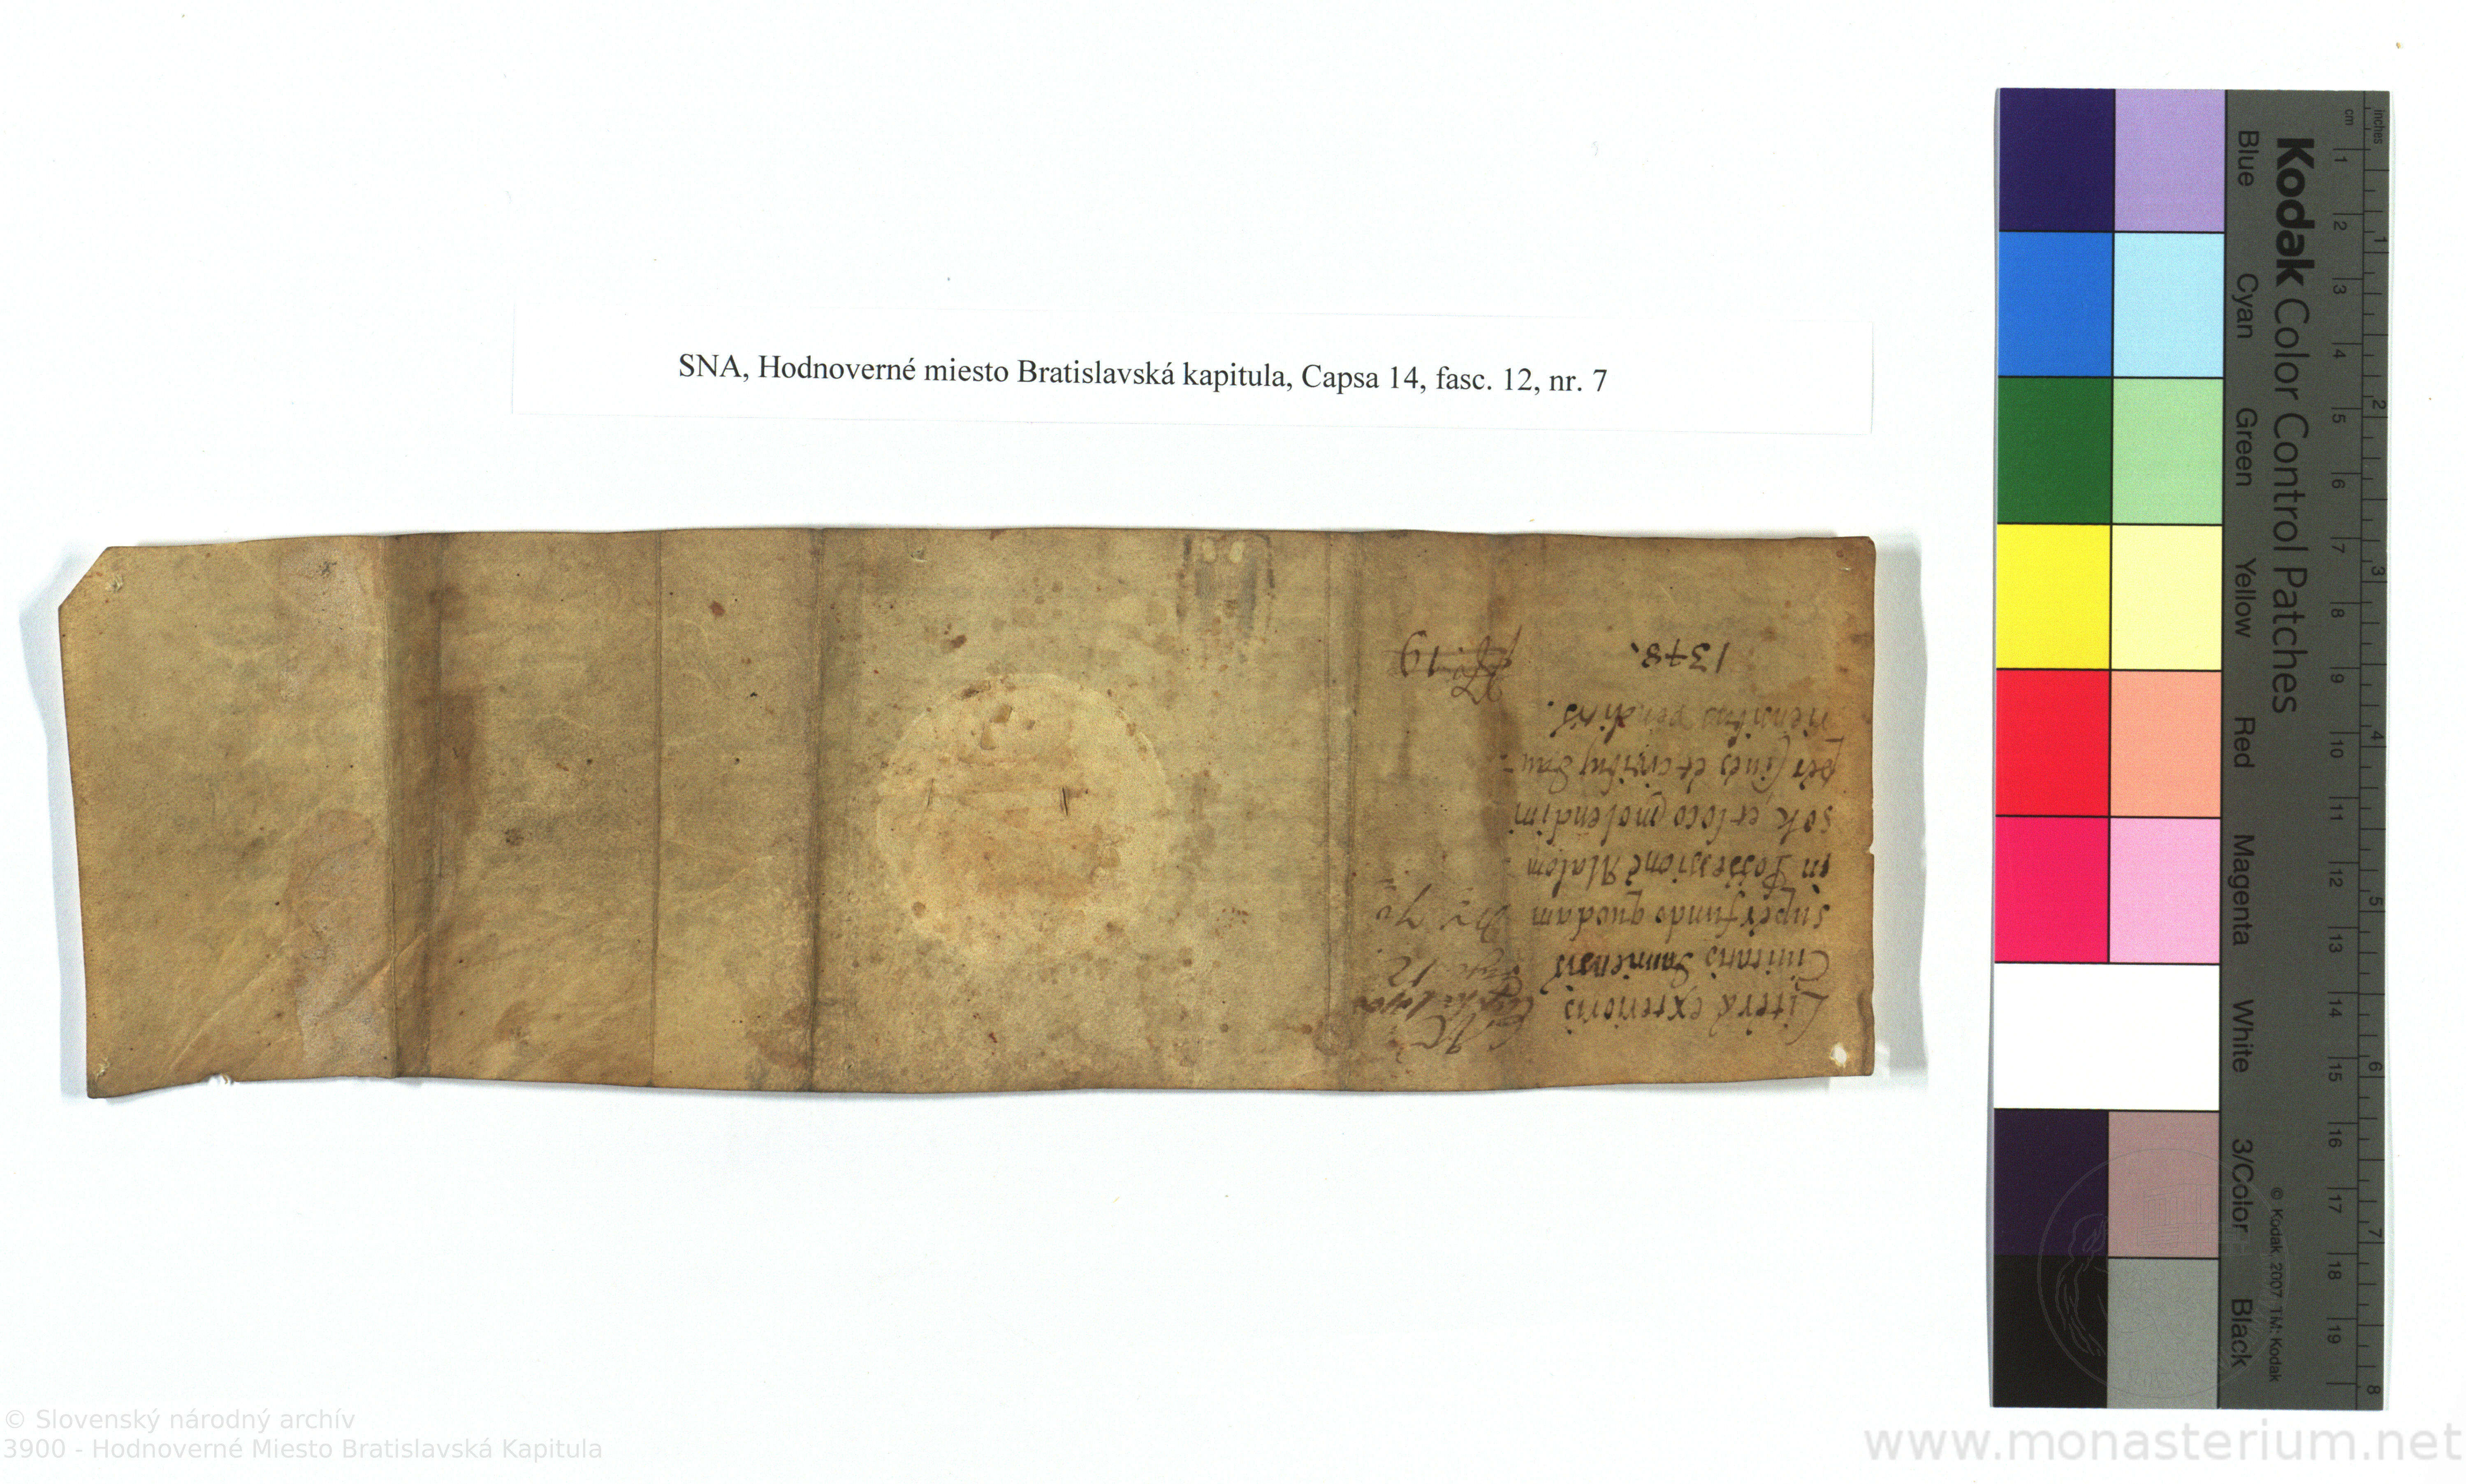 SNA, Hodnoverné miesto Bratislavská kapitula, Capsa 14, fasc. 12, nr. 7
exterioris
Civitatis
super fundo quodam
in Possessione Malom
sok et loco molendini
per et
venditis.
1378.
19
12
Kodak Color Control Patches
Blue
Cyan
Green
Yellow
Red
Magenta
White
3/Color
Black
inches
cm
1 2 3 4 5 6 7 8 9 10 11 12 13 14 15 16 17 18 19
1 2 3 4 5 6 7 8
© Kodak, 2007, TM: Kodak
© Slovenský národný archív
3900 - Hodnoverné Miesto Bratislavská Kapitula
www.monasterium.net